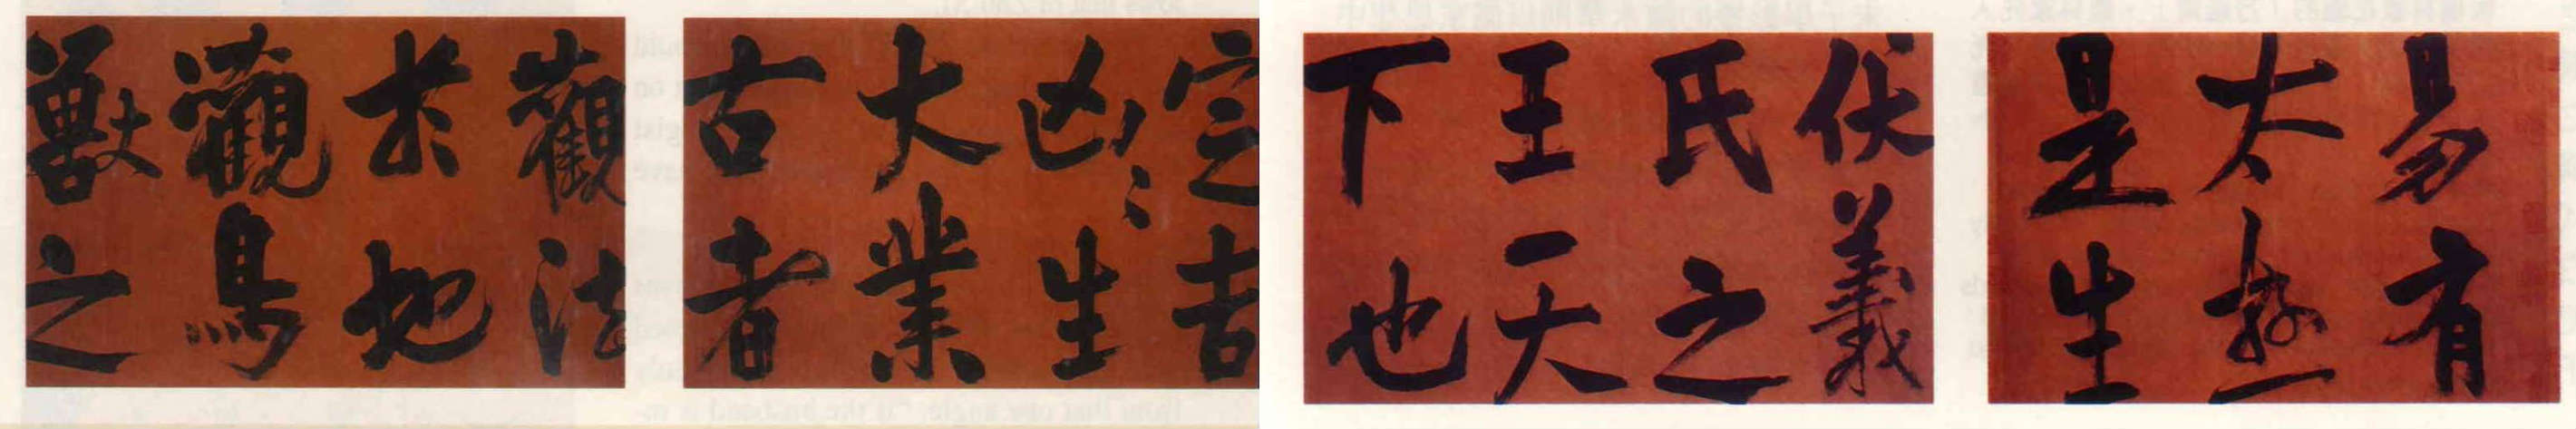 易有
太極
是生
伏羲
氏之
王天
下也
定吉
凶〻生
大業
古者
觀法
於地
觀鳥
獸之